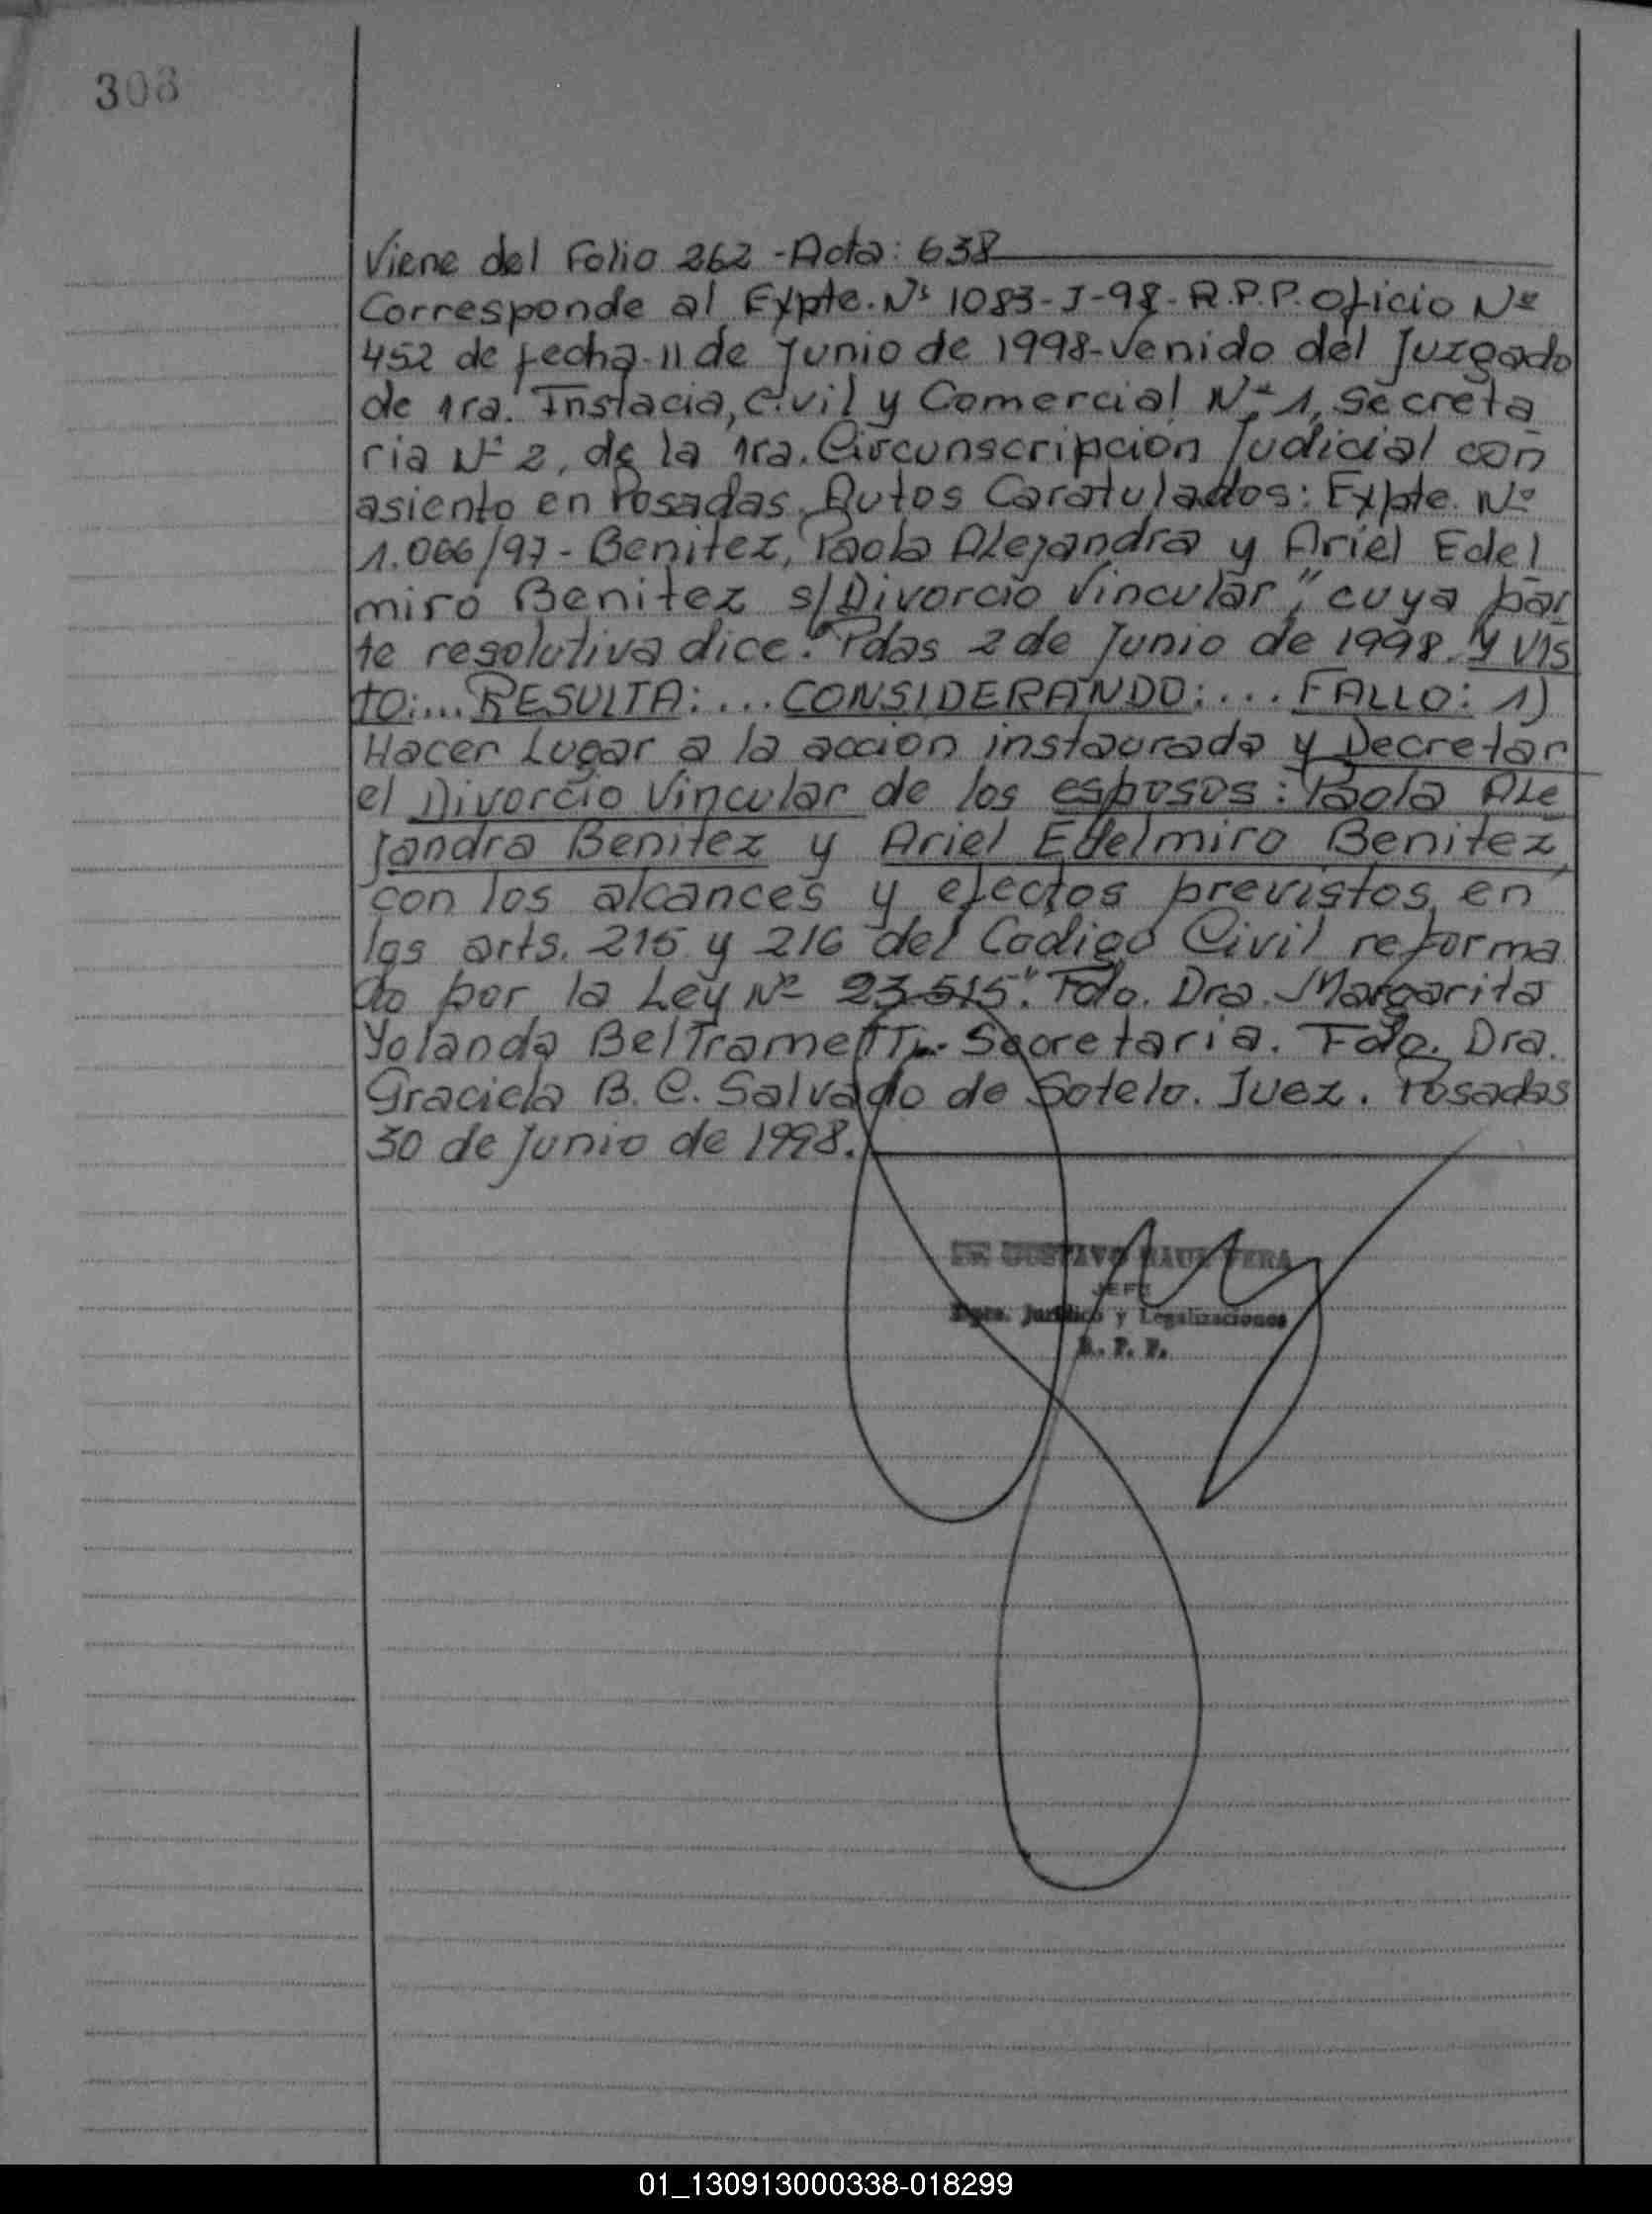 308
Viene del Folio 262 - Acta: 638
Corresponde al Expte. Nº 1083-J-98- R.P.P. oficio Nº
452 de fecha 11 de Junio de 1998-Venido del Juzgado
de 1ra. Instacia, Civil y Comercial Nº 1, Secreta
ria Nº 2, de la 1ra. Circunscripción Judicial con
asiento en Posadas, Autos Caratulados: Expte. Nº
1.066/97- Benitez, Paola Alejandra y Ariel Edel
miro Benitez s/Divorcio Vincular", cuya par
te resolutiva dice: "Pdas 2 de Junio de 1998. Y VIS
TO:... RESULTA:... CONSIDERANDO:... FALLO: 1)
Hacer Lugar a la accion instaurada y Decretar
el Divorcio Vincular de los esposos: Paola Ale
jandra Benitez y Ariel Edelmiro Benitez,
con los alcances y efectos previstos en
los arts. 215 y 216 del Codigo Civil reforma
do por la Ley Nº 23.515". Fdo. Dra. Margarita
Yolanda BelTrameTTi- Secretaria. Fdo. Dra.
Graciela B. C. Salvado de Sotelo. Juez. Posadas
30 de Junio de 1998.
Dr. GUSTAVO RAUL VERA
JEFE
Dpto. Jurídico y Legalizaciones
R. P. P.
01_130913000338-018299